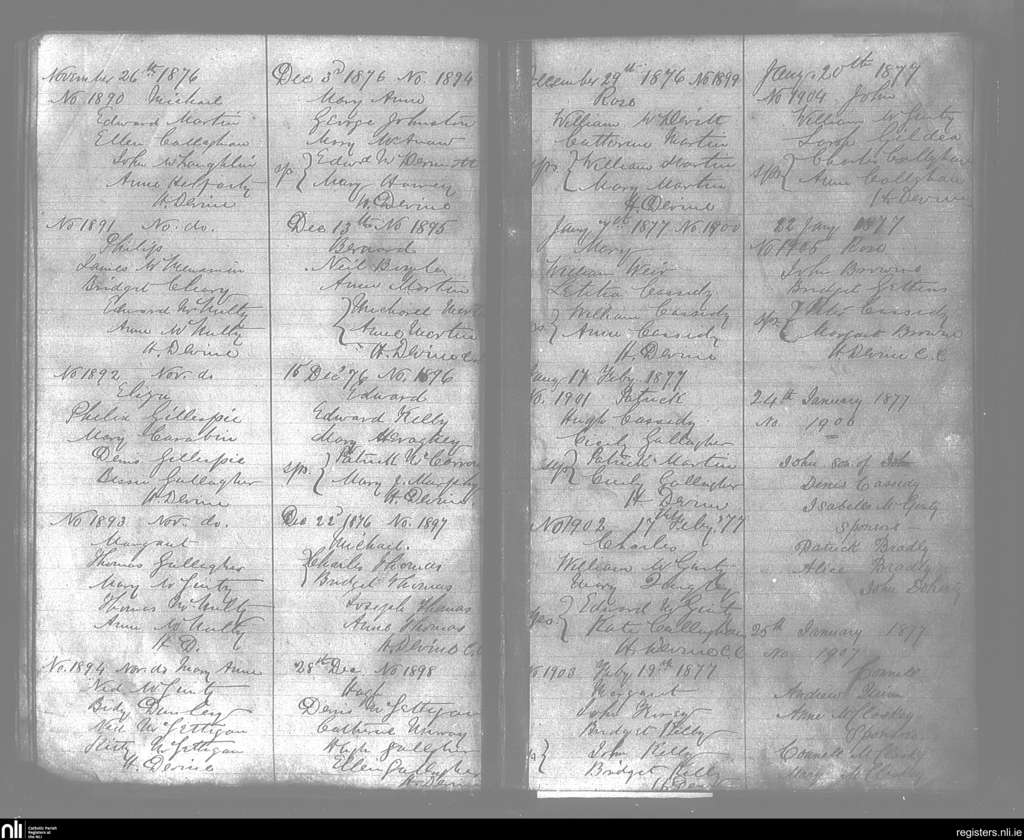 November 26th 1876
No 1890 Michael
Edward Martin
Ellen Callaghan
John McLaughlin
Anne
H. Devine
No 1891 Nov. do.
Philip
James McMenamin
Bridget Cleary
Edward McNulty
Anne McNulty
H. Devine
No 1892 Nov. do
Eliza
Phelix Gillespie
Mary Carabin
Denis Gillespie
Bessie Gallagher
H. Devine
No 1893 Nov. do.
Margaret
Thomas Gallagher
Mary McGinty
Thomas McNulty
Anne McNulty
H. D.
No. 1894 Nov. do Mary Anne
Ned McGinty
Bidy
Ned McGettigan
McGettigan
H. Devine
Dec 3d 1876 No. 1894
Mary Anne
George Johnston
Mary
sp. Edwd
Mary
H. Devine
Dec 13th No 1895
Bernard
Neil
Anne Martin
Michael
Anne Martin
H. Devine C.C.
15 Dec 76 No. 1896
Edward
Edward Kelly
Mary
sps. Patrick
Mary J. Murphy
H. Devine
Dec 22d 1876 No. 1897
Michael.
Charles Thomas
Bridget Thomas
Joseph Thomas
Anne Thomas
H. Devine C.C.
28th Dec. No 1898
Hugh
Denis McGettigan
Catherine
Hugh Gallagher
Ellen Gallagher
H. Devine
December 29th 1876 No 1899
Rose
William McDevitt
Catherine Martin
sps. William Martin
Mary Martin
H. Devine
Jany 7th 1877 No 1900
Mary
William Weir
Letitia Cassidy
William Cassidy
Anne Cassidy
H. Devine
17 Feby. 1877
No. 1901 Patrick
Hugh Cassidy
Cecily Gallagher
sps Patrick Martin
Cecily Gallagher
H Devine
No 1902 17th Feby. '77
Charles
William McGinty
Mary
sps Edward McGinty
Kate Callaghan
H. Devine C.C
No 1903 Feby 19th 1877
Margaret
John
Bridget Kelly
John Kelly
Bridget Kelly
Jany. 20th 1877
No 1904 John
William McGinty
Gildea
sps Charles Callaghan
Anne Callaghan
H. Devine
22 Jany 1877
No 1905 Rose
John Browne
Bridget Gettins
sps Peter Cassidy
Margaret Browne
H. Devine C.C
24th January 1877
No. 1906
John son of John
Denis Cassidy
Isabella McGinty
Sponsors
Patrick Bradly
Alice Bradly
John Doherty
25th January 1877
No. 1907
Connell
Andrew
Anne McCloskey
Sponsors
Connell
Mary
nli
Catholic Parish
Registers at
the NLI
registers.nli.ie